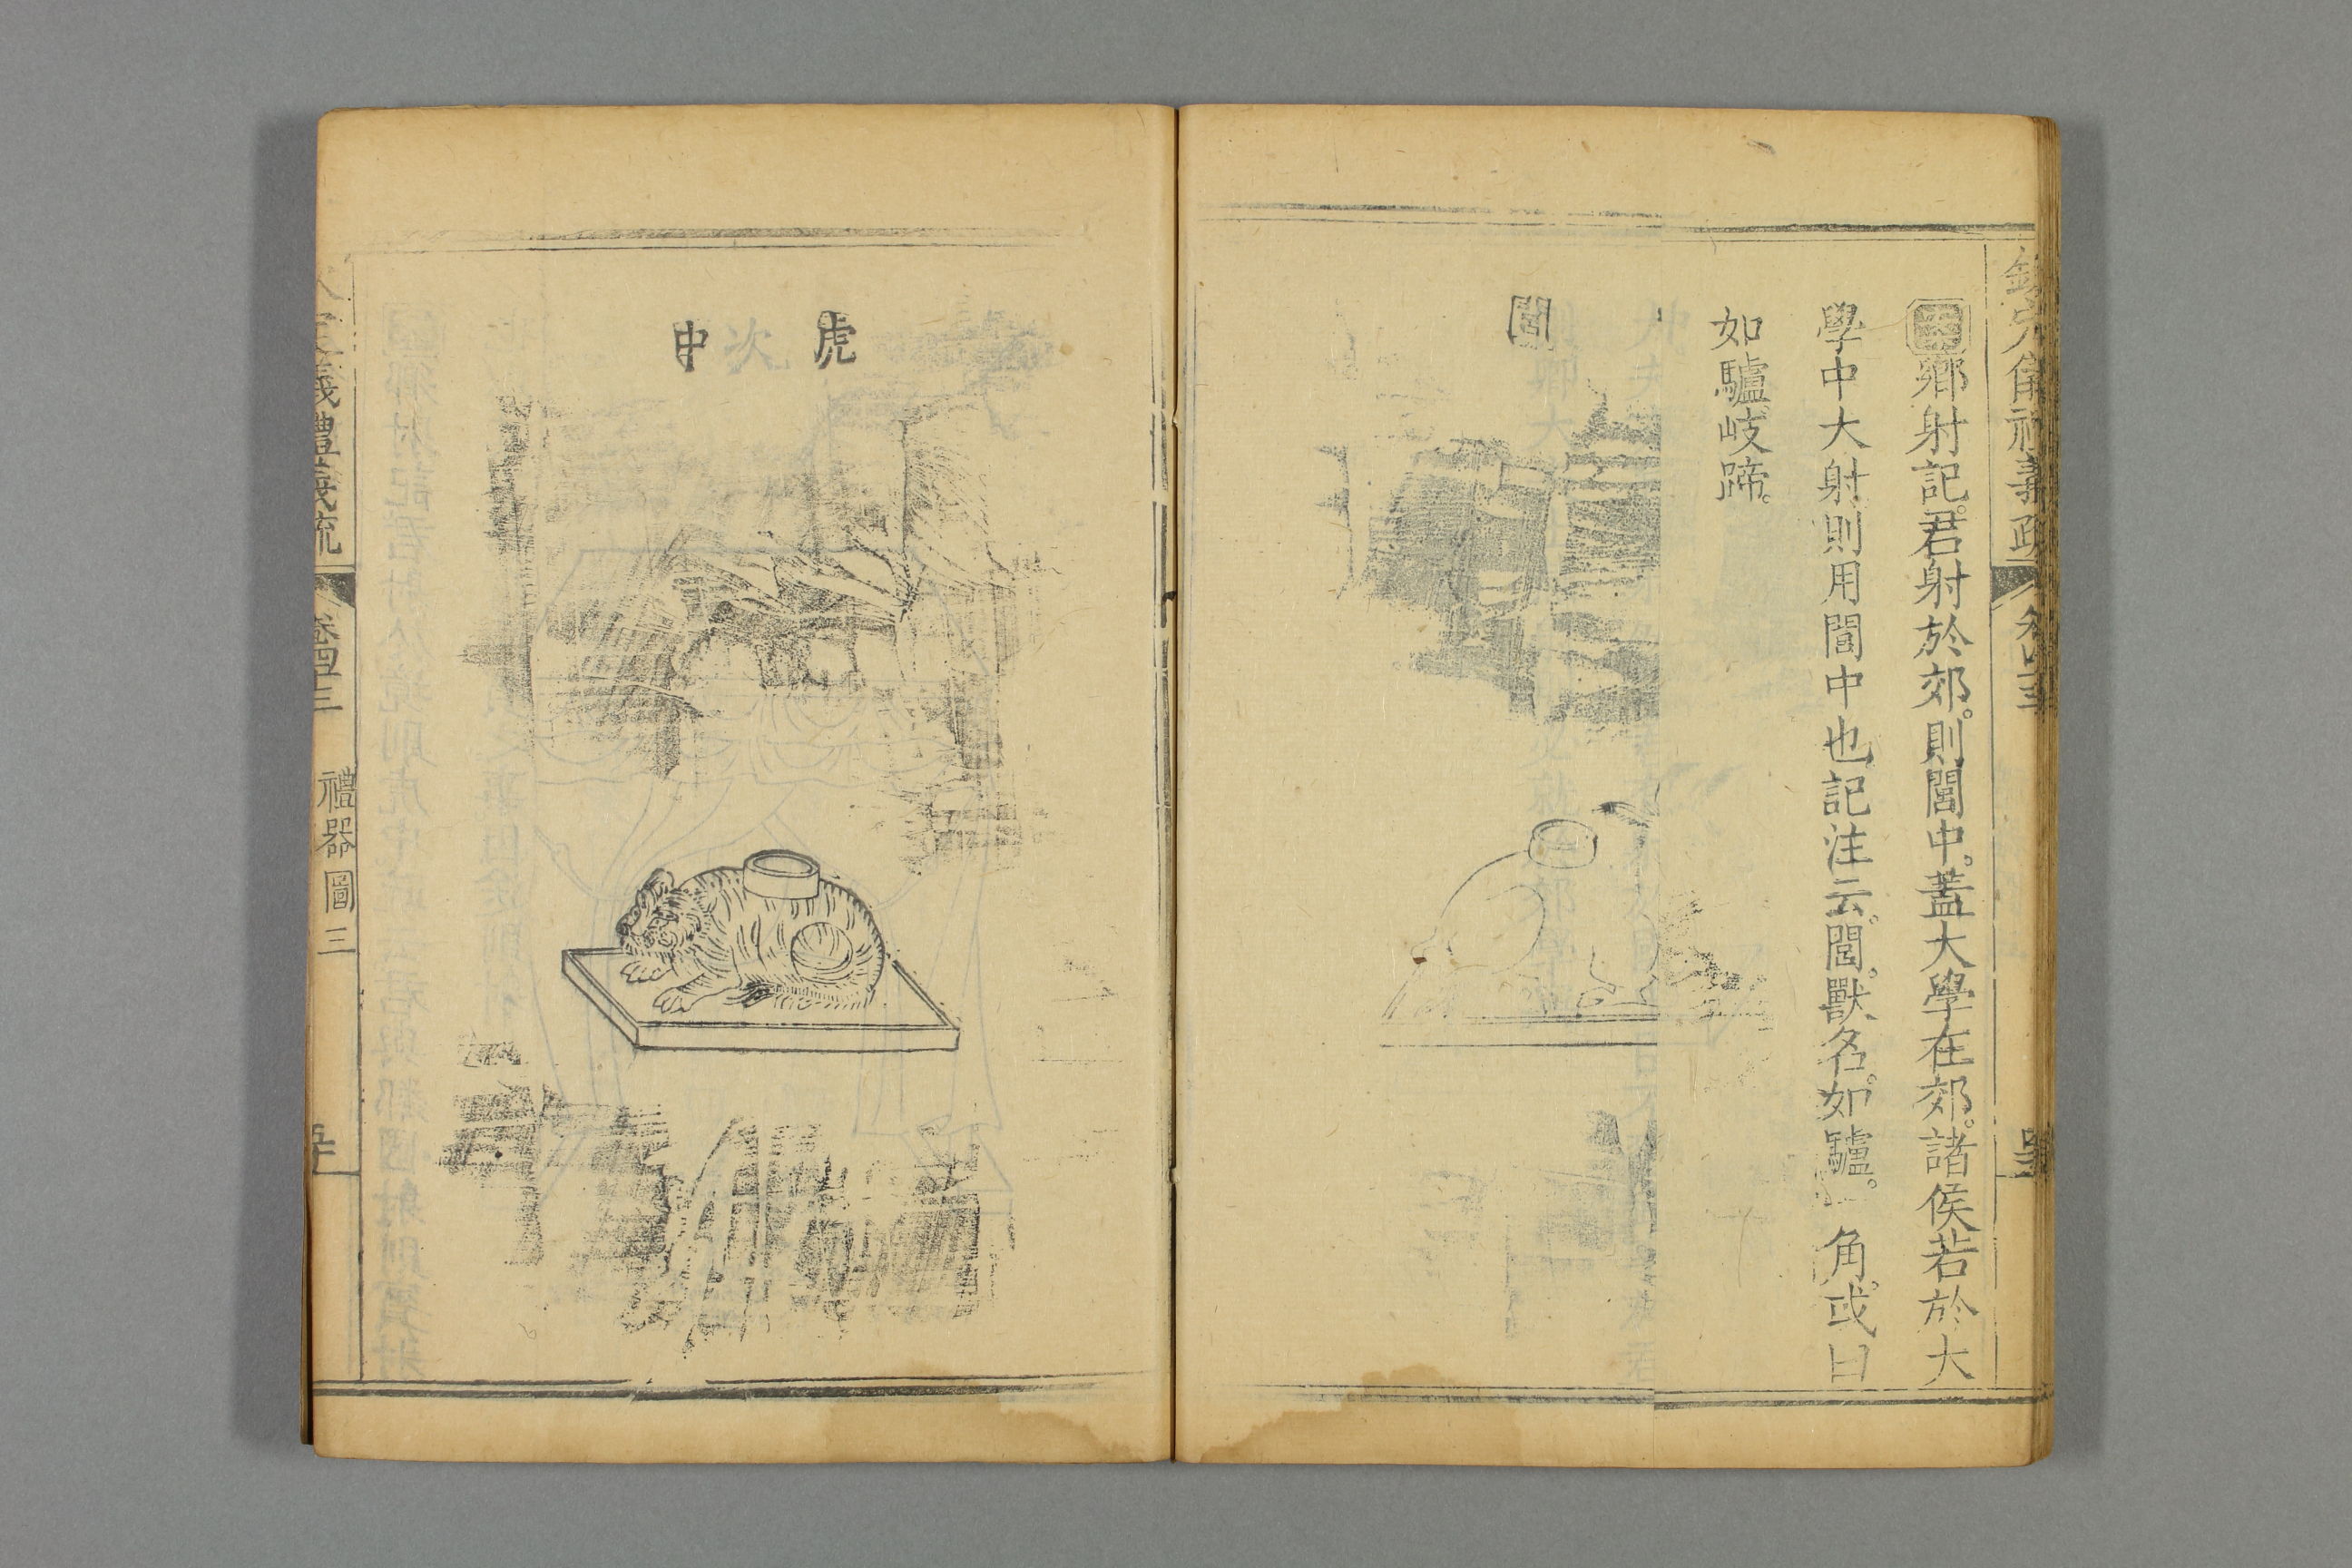 欽定儀禮義疏 卷四十三
鄉射記。君射於郊。則閭中。蓋大學在郊。諸侯若於大
學中大射則用閭中也記注云。閭。獸名。如驢。一角。或曰
如驢岐蹄。
閭
虎中
儀禮義疏 卷四十三 禮器圖三